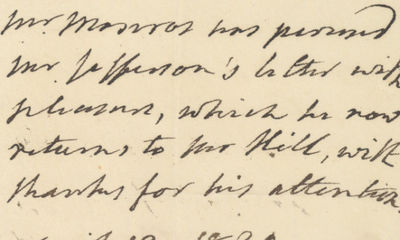 Mr Monroe has perused
Mr Jefferson's letter with
pleasure, which he now
returns to Mr Hill, with
thanks for his attention.